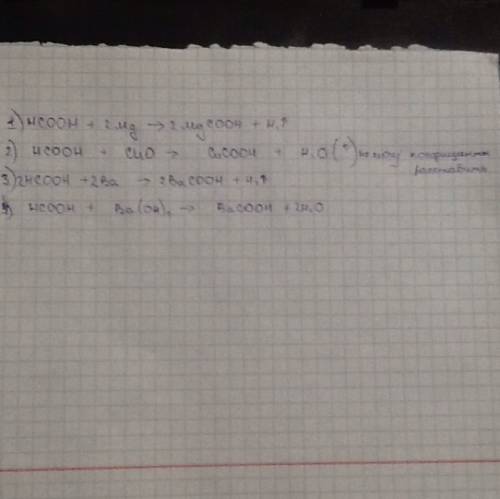 1) HCOOH + 2Mg → 2MgCOOH + H₂↑
2) HCOOH + CuO → CuCOOH + H₂O (*) не могу коэффициенты расставить
3) 2HCOOH + 2Ba → 2BaCOOH + H₂↑
4) HCOOH + Ba(OH)₂ → BaCOOH + 2H₂O